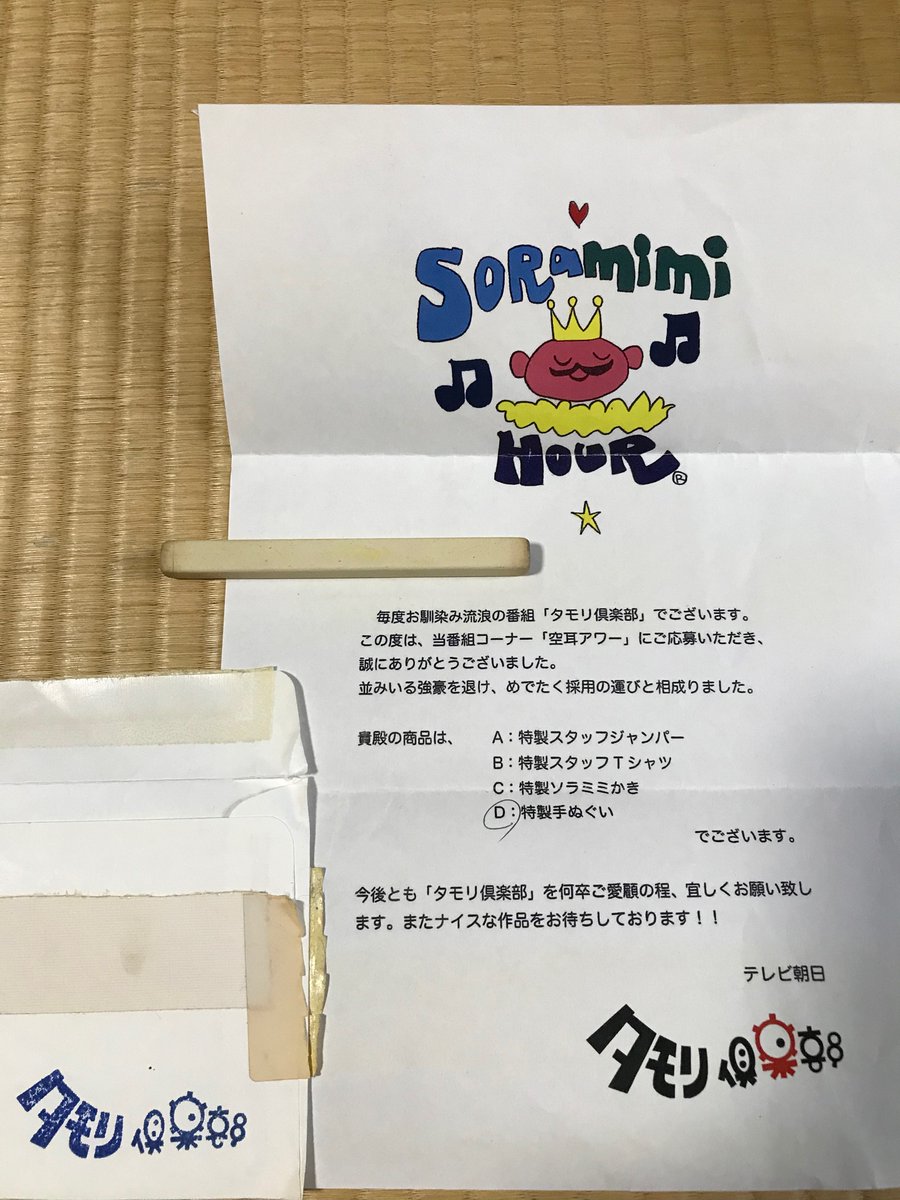 SORamimi
HOUR®
毎度お馴染み流浪の番組「タモリ倶楽部」でございます。
この度は、当番組コーナー「空耳アワー」にご応募いただき、
誠にありがとうございました。
並みいる強豪を退け、めでたく採用の運びと相成りました。
貴殿の商品は、 A:特製スタッフジャンパー
B:特製スタッフTシャツ
C:特製ソラミミかき
D:特製手ぬぐい
でございます。
今後とも「タモリ倶楽部」を何卒ご愛顧の程、宜しくお願い致し
ます。またナイスな作品をお待ちしております!!
テレビ朝日
タモリ倶楽部
タモリ倶楽部